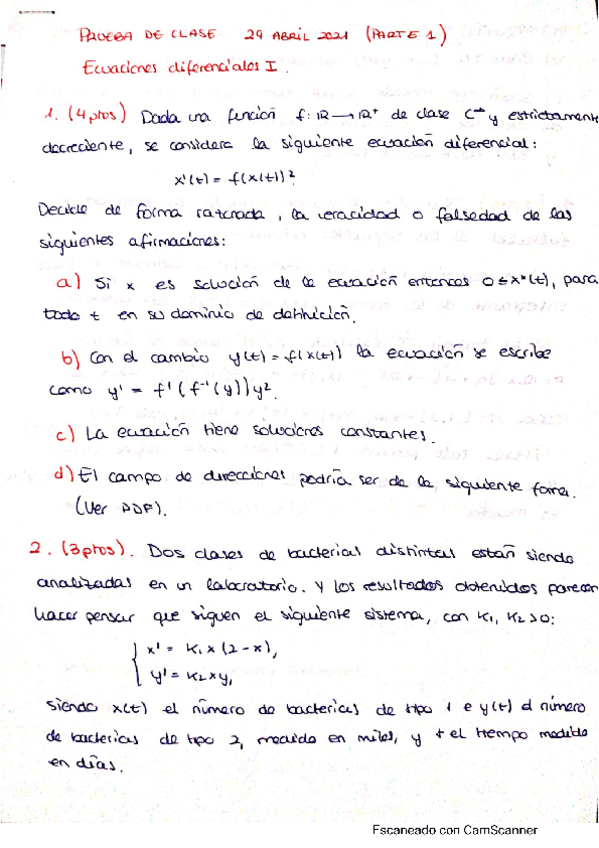 PRUEBA DE CLASE 29 ABRIL 2021 (PARTE 1)
Ecuaciones diferenciales I.
1. (4 ptos) Dada una función f: ℝ → ℝ⁺ de clase C^∞ y estrictamente
decreciente, se considera la siguiente ecuación diferencial:
x'(t) = f(x(t))²
Decide de forma razonada, la veracidad o falsedad de las
siguientes afirmaciones:
a) Si x es solución de la ecuación entonces 0 ≤ x''(t), para
todo t en su dominio de definición.
b) Con el cambio y(t) = f(x(t)) la ecuación se escribe
como y' = f'(f⁻¹(y))y².
c) La ecuación tiene soluciones constantes.
d) El campo de direcciones podría ser de la siguiente forma.
(Ver PDF).
2. (3 ptos). Dos clases de bacterias distintas están siendo
analizadas en un laboratorio. Y los resultados obtenidos parecen
hacer pensar que siguen el siguiente sistema, con K₁, K₂ > 0:
x' = K₁ x (2 - x),
y' = K₂ x y,
siendo x(t) el número de bacterias de tipo 1 e y(t) el número
de bacterias de tipo 2, medido en miles, y t el tiempo medido
en días.
Escaneado con CamScanner